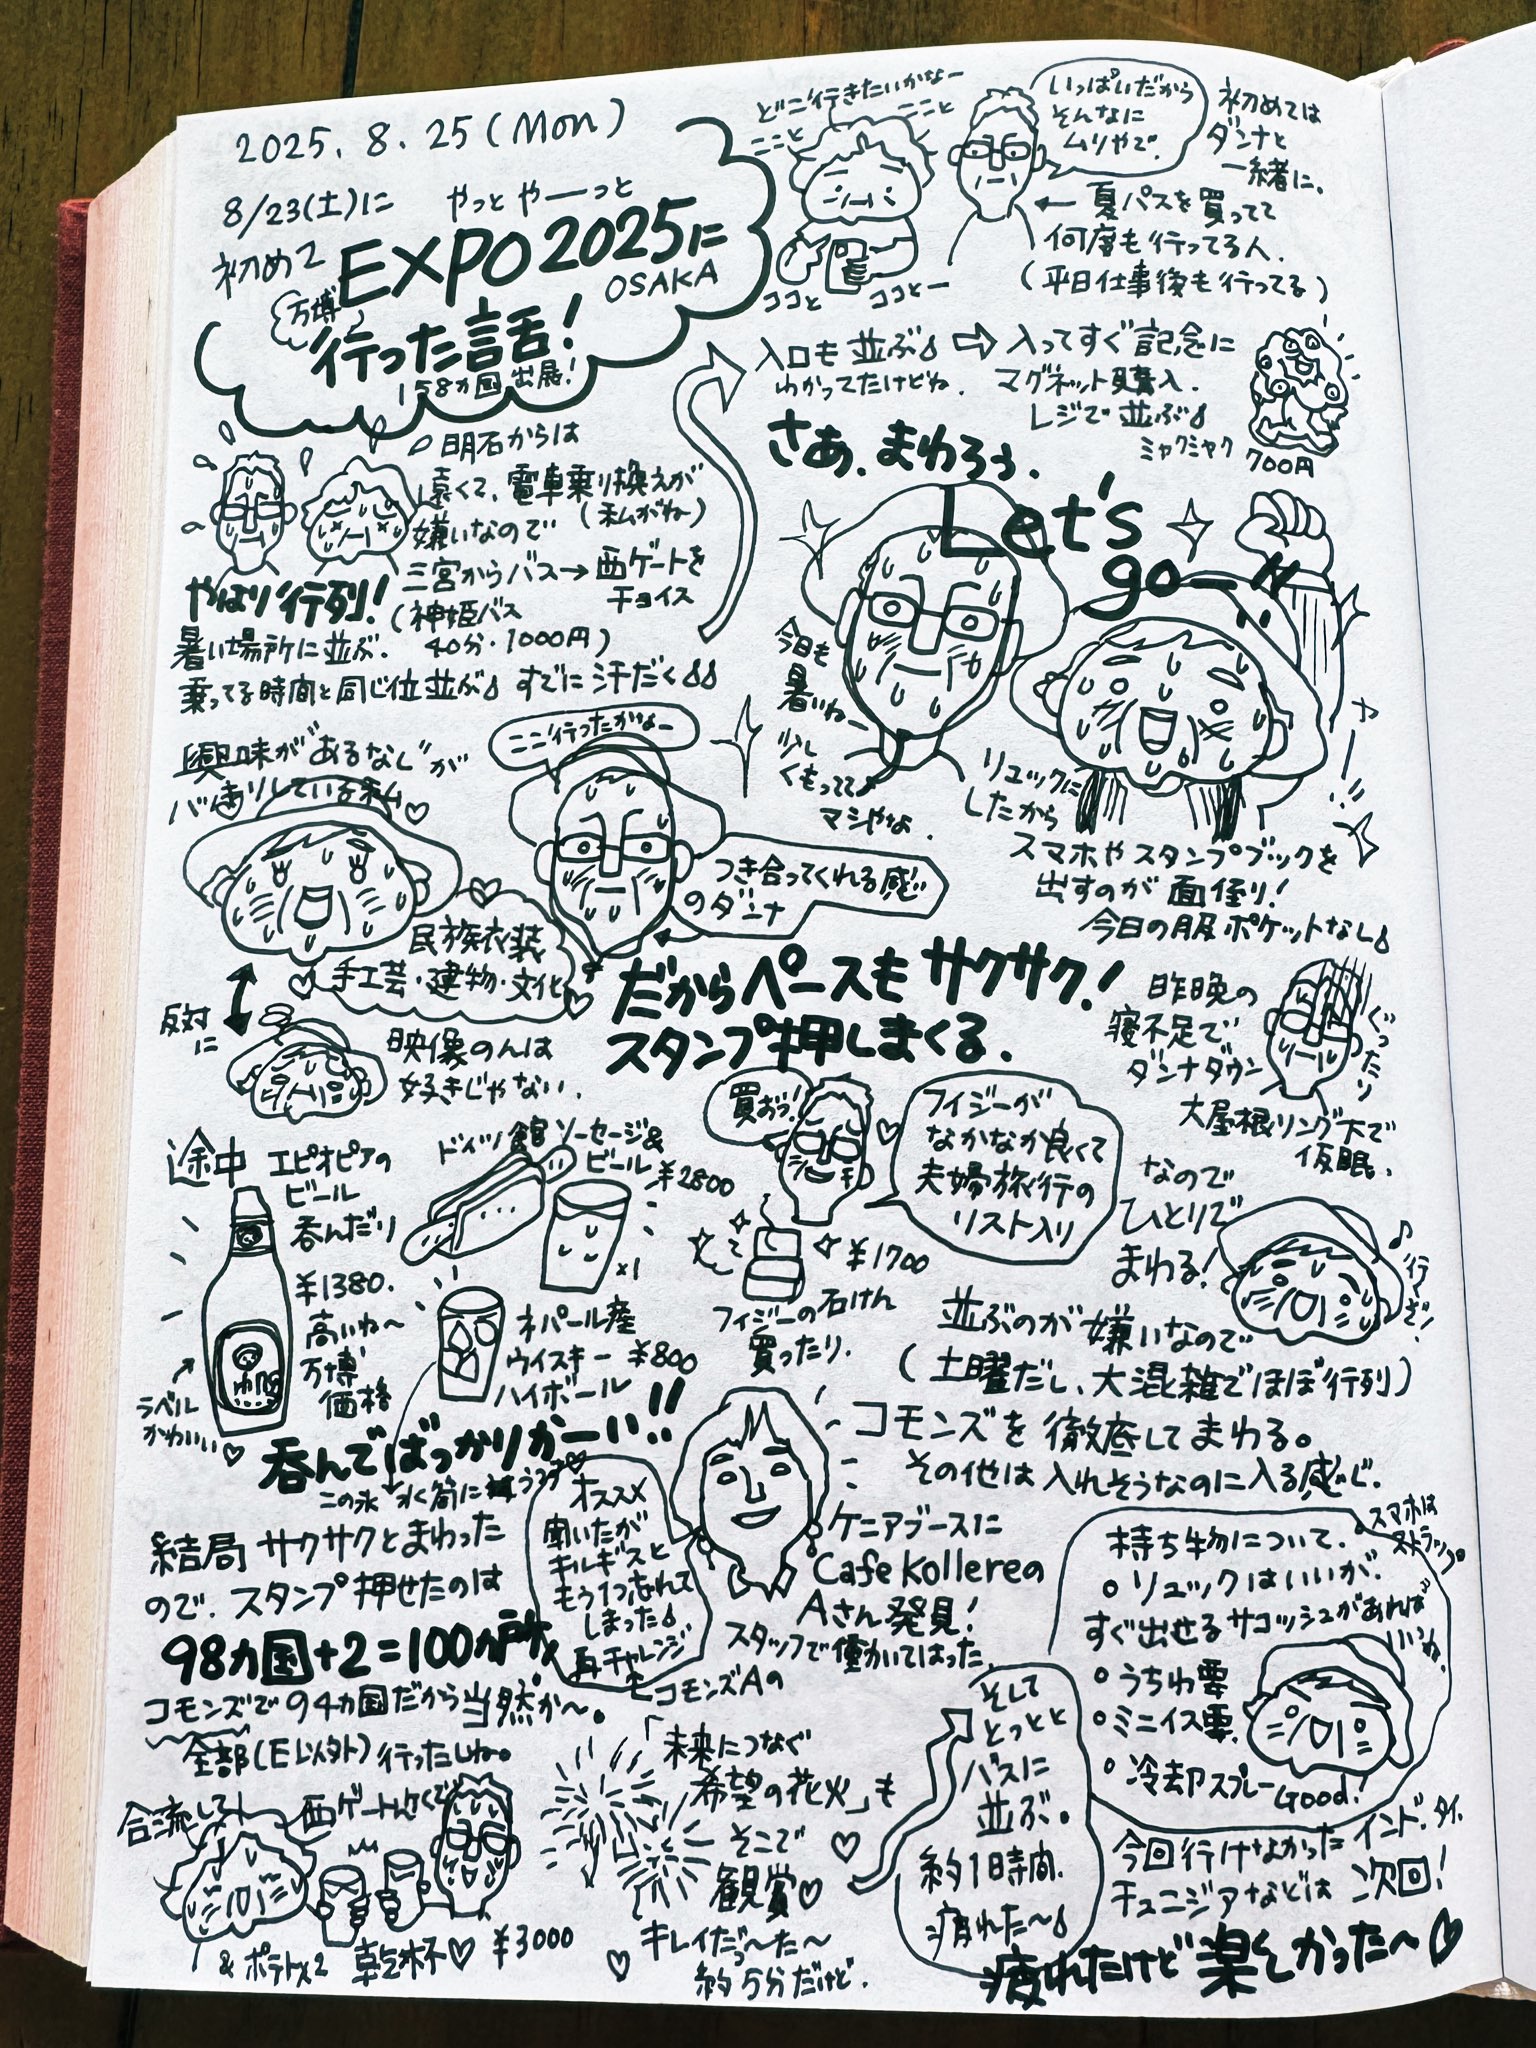 2025. 8. 25 (Mon)
8/23(土)に
やっと やーっと
初めて
EXPO2025に
OSAKA
万博
行った話!
158ヵ国 出展!
どこ行きたいかなー
ここと
ここと
ココと
ココとー
いっぱいだから
そんなに
ムリやで。
初めては
ダンナと
一緒に。
← 夏パスを買ってて
何度も行ってる人。
(平日仕事後も行ってる)
明石からは
遠くて、電車乗り換えが
嫌いなので (私がね)
三宮からバス→西ゲートを
チョイス
(神姫バス
40分・1000円)
やはり行列!
暑い場所に並ぶ。
乗ってる時間と同じ位並ぶ すでに汗だく
入口も並ぶ ⇨ 入ってすぐ記念に
わかってたけどね。 マグネット購入。
レジで並ぶ
ミャクミャク
700円
さあ、まわろぅ。
Let's
go―!!
今日も
暑いねー
少し
くもってて
マシやな。
リュックに
したから
スマホやスタンプブックを
出すのが面倒り!
今日の服ポケットなし
興味が"あるなし"が
ハッキリしている私♡
ここ行ったがなー
つき合ってくれる感じ
のダンナ
民族衣装
手工芸・建物・文化
反対
に
映像のんは
好きじゃない。
だからペースもサクサク!
スタンプ押しまくる。
昨晩の
寝不足で
ダンナダウン
ぐったり
大屋根リング下で
仮眠。
なので
ひとりで
まわる!
♪行くぞ!
途中 エピオピアの
ビール
呑んだり
¥1380.
高いね〜
万博
価格
ラベル
かわいい♡
ドイツ館 ソーセージ&
ビール
¥2800
×1
ネパール産
ウイスキー ¥800
ハイボール
買おう!
フィジーが
なかなか良くて
夫婦旅行の
リスト入り
¥1700
フィジーの石けん
買ったり。
呑んでばっかりかーい!!
並ぶのが嫌いなので
(土曜だし、大混雑でほぼ行列)
コモンズを徹底してまわる。
その他は入れそうなのに入る感じ。
オススメ
聞いたが
キルギスと
もう1つ忘れて
しまった
再チャレンジ
ケニアブースに
Cafe Kollereの
Aさん発見!
スタッフで働いてはった。
結局サクサクとまわった
ので、スタンプ押せたのは
98ヵ国+2=100ヵ所。
コモンズで94ヵ国だから当然か〜。
全部(E以外)行ったしね。
持ち物について。
スマホは
ストラップ
○リュックはいいが、
すぐ出せるサコッシュがあれば
いいね。
○うちわ要
○ミニイス要
○冷却スプレー
Good!
合流して
西ゲート近くで
& ポテト×2 乾杯♡ ¥3000
コモンズAの
「未来につなぐ
希望の花火」も
そこで
観賞♡
キレイだっ〜た〜
約5分だけど。
そして
とっとと
バスに
並ぶ。
約1時間。
疲れた〜
今回行けなかった インド、タイ、
チュニジアなどは 次回!
疲れたけど楽しかった〜♡